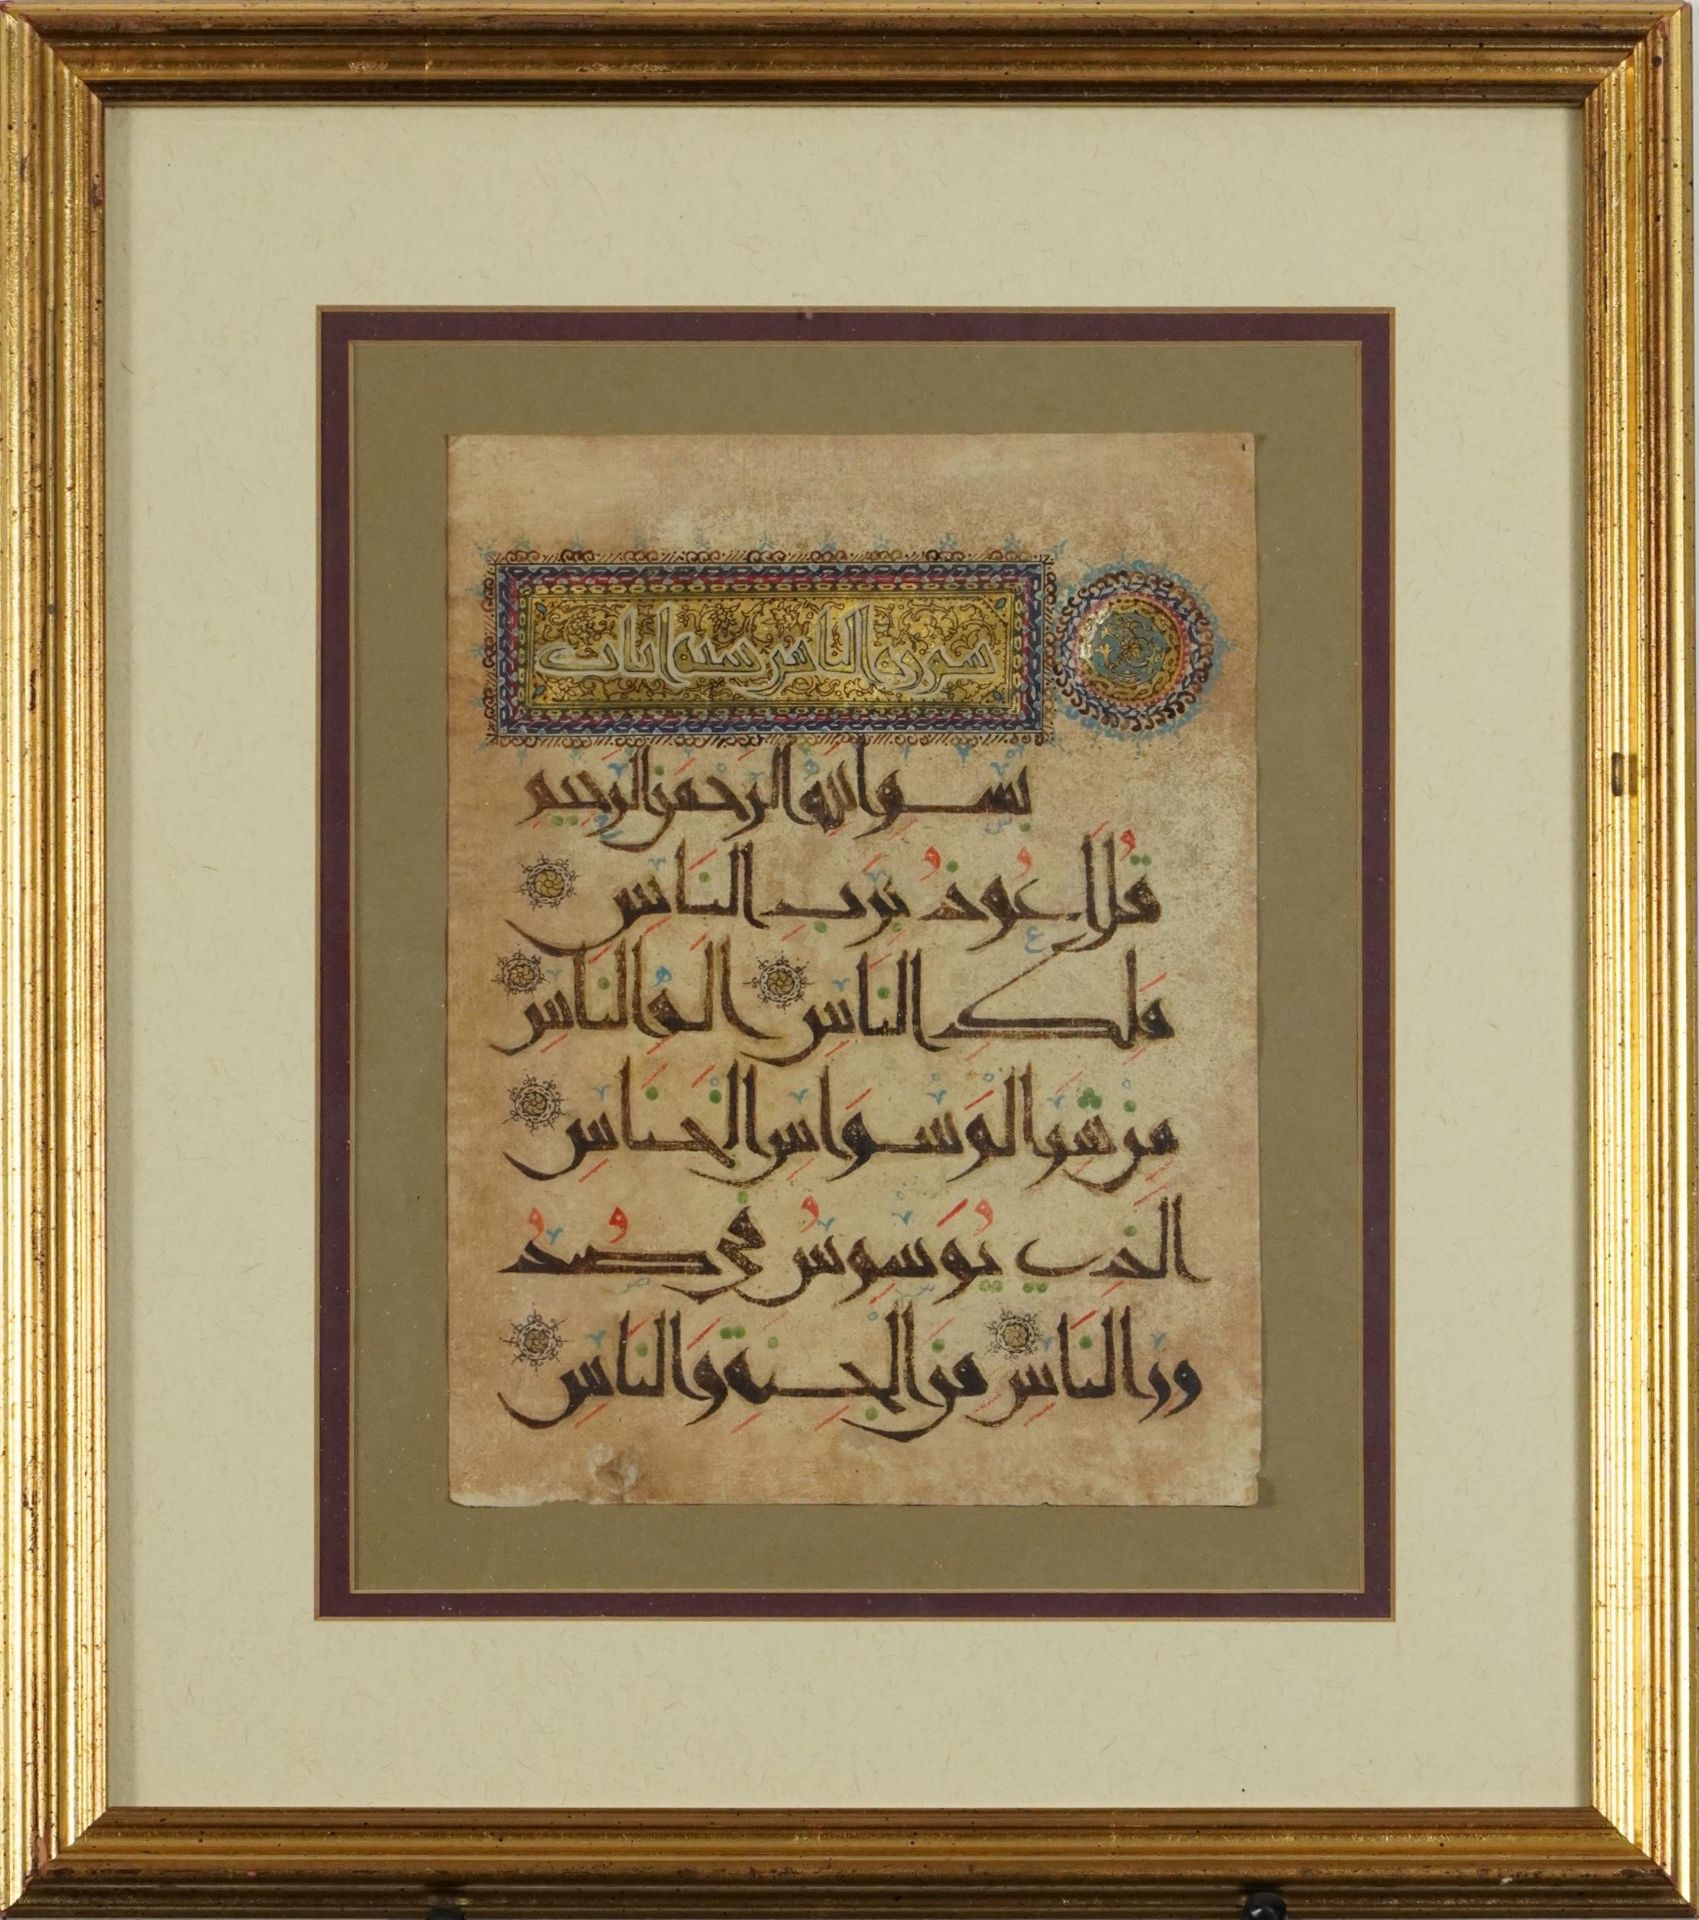 سورة الناس ست ايات
بسم الله الرحمن الرحيم
قُلْ اَعُوذُ بِرَبِّ النَّاسِ
مَلِكِ النَّاسِ اِلَهِ النَّاسِ
مِنْ شَرِّ الْوَسْوَاسِ الْخَنَّاسِ
الَّذِي يُوَسْوِسُ فِي صُدُ
ورِ النَّاسِ مِنَ الْجِنَّةِ وَالنَّاسِ